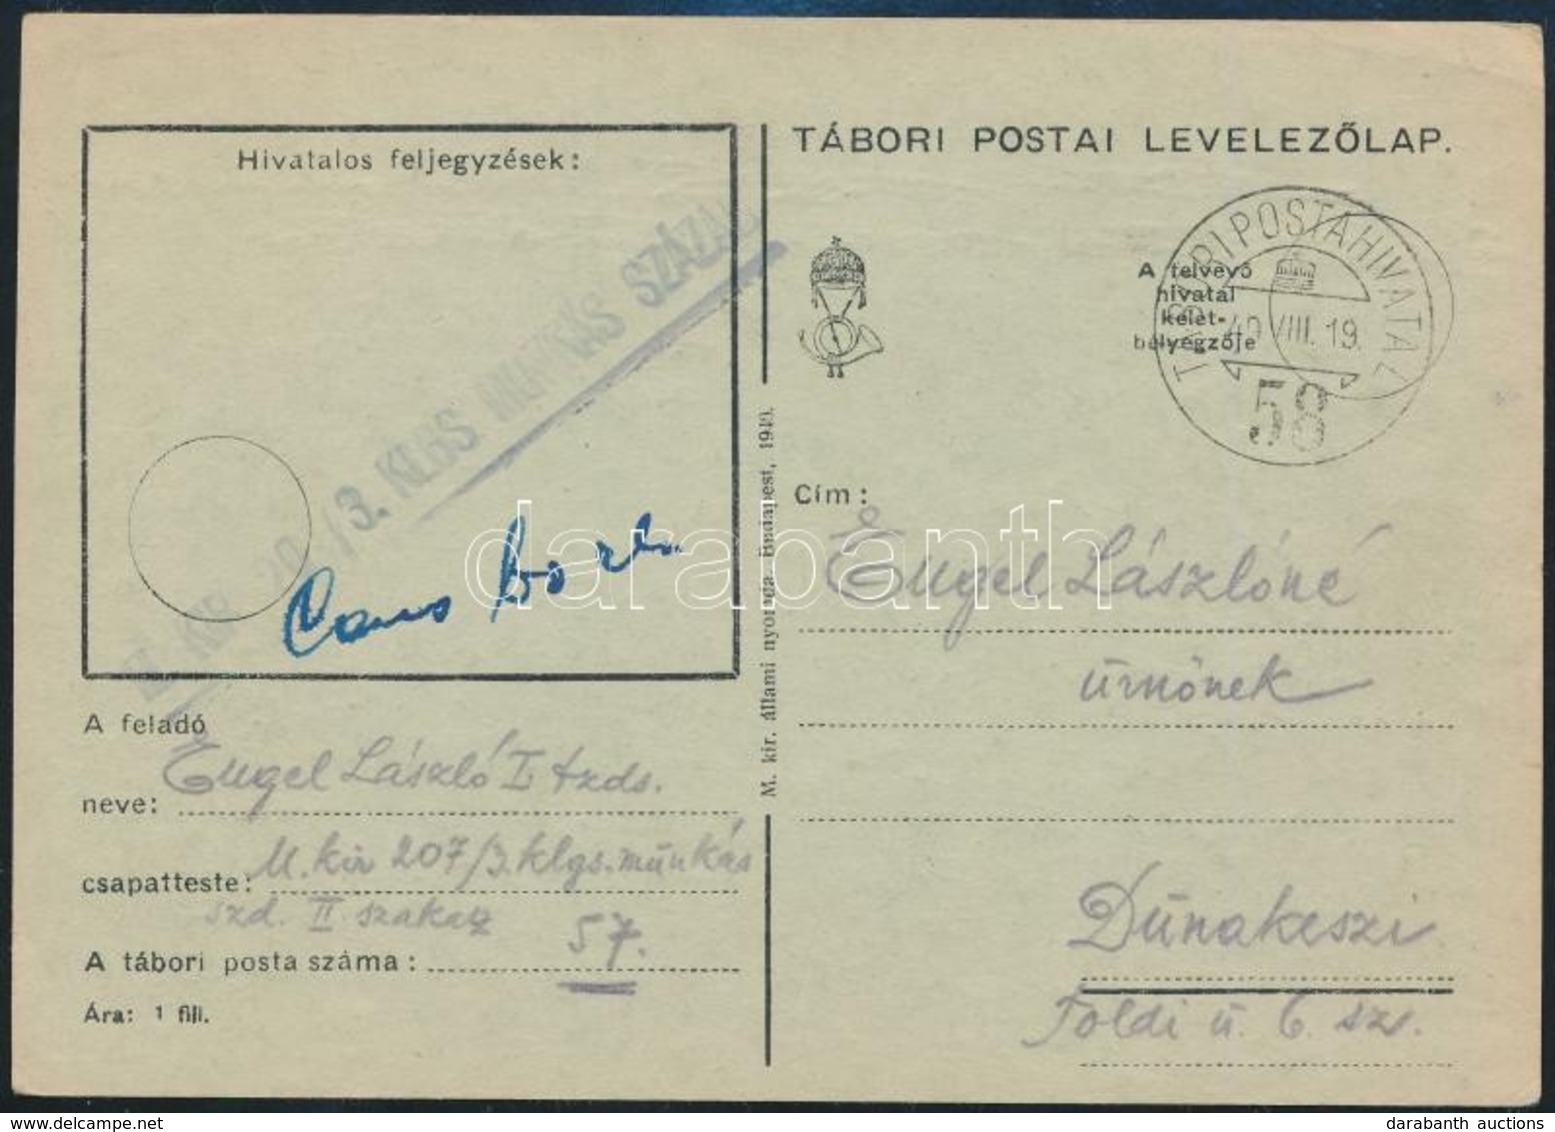 TÁBORI POSTAI LEVELEZŐLAP.
Hivatalos feljegyzések:
/3. KLGS MUNKÁS SZÁZAD
TÁBORI POSTAHIVATAL
40 VIII. 19.
58
A felvevő
hivatal
kelet-
bélyegzője
M. kir. állami nyomda. Budapest, 1940.
Cím:
Engel Lászlóné
úrnőnek
Dunakeszi
Földi u. 6. sz.
A feladó
neve: Engel László I. tzds.
csapatteste: M. kir 207/3. klgs. munkás
szd. II. szakasz
A tábori posta száma: 57.
Ára: 1 fill.
darabanth
darabanth auctions